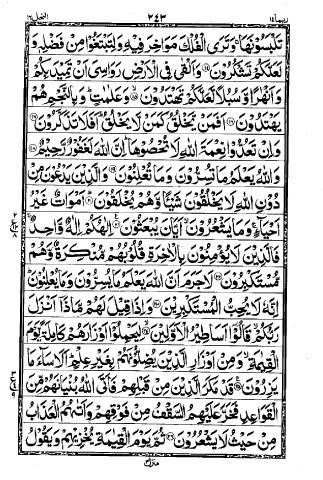 النحل ١٦ ٢٤٣ ربما ١٤
تَلْبَسُوْنَهَا وَتَرَى الْفُلْكَ مَوَاخِرَ فِيْهِ وَلِتَبْتَغُوْا مِنْ فَضْلِهٖ وَ
لَعَلَّكُمْ تَشْكُرُوْنَ ﴿١٤﴾ وَاَلْقٰى فِى الْاَرْضِ رَوَاسِىَ اَنْ تَمِيْدَ بِكُمْ
وَاَنْهٰرًا وَّسُبُلًا لَّعَلَّكُمْ تَهْتَدُوْنَ ﴿١٥﴾ وَعَلٰمٰتٍ وَبِالنَّجْمِ هُمْ
يَهْتَدُوْنَ ﴿١٦﴾ اَفَمَنْ يَّخْلُقُ كَمَنْ لَّا يَخْلُقُ اَفَلَا تَذَكَّرُوْنَ ﴿١٧﴾
وَاِنْ تَعُدُّوْا نِعْمَةَ اللهِ لَا تُحْصُوْهَا اِنَّ اللهَ لَغَفُوْرٌ رَّحِيْمٌ ﴿١٨﴾
وَاللهُ يَعْلَمُ مَا تُسِرُّوْنَ وَمَا تُعْلِنُوْنَ ﴿١٩﴾ وَالَّذِيْنَ يَدْعُوْنَ مِنْ
دُوْنِ اللهِ لَا يَخْلُقُوْنَ شَيْئًا وَّهُمْ يُخْلَقُوْنَ ﴿٢٠﴾ اَمْوَاتٌ غَيْرُ
اَحْيَآءٍ وَمَا يَشْعُرُوْنَ اَيَّانَ يُبْعَثُوْنَ ﴿٢١﴾ اِلٰهُكُمْ اِلٰهٌ وَّاحِدٌ
فَالَّذِيْنَ لَا يُؤْمِنُوْنَ بِالْاٰخِرَةِ قُلُوْبُهُمْ مُّنْكِرَةٌ وَّهُمْ
مُّسْتَكْبِرُوْنَ ﴿٢٢﴾ لَا جَرَمَ اَنَّ اللهَ يَعْلَمُ مَا يُسِرُّوْنَ وَمَا يُعْلِنُوْنَ
اِنَّهٗ لَا يُحِبُّ الْمُسْتَكْبِرِيْنَ ﴿٢٣﴾ وَاِذَا قِيْلَ لَهُمْ مَّاذَا اَنْزَلَ
رَبُّكُمْ قَالُوْا اَسَاطِيْرُ الْاَوَّلِيْنَ ﴿٢٤﴾ لِيَحْمِلُوْا اَوْزَارَهُمْ كَامِلَةً يَّوْمَ
الْقِيٰمَةِ وَمِنْ اَوْزَارِ الَّذِيْنَ يُضِلُّوْنَهُمْ بِغَيْرِ عِلْمٍ اَلَا سَآءَ مَا
يَزِرُوْنَ ﴿٢٥﴾ قَدْ مَكَرَ الَّذِيْنَ مِنْ قَبْلِهِمْ فَاَتَى اللهُ بُنْيَانَهُمْ مِّنَ
الْقَوَاعِدِ فَخَرَّ عَلَيْهِمُ السَّقْفُ مِنْ فَوْقِهِمْ وَاَتٰىهُمُ الْعَذَابُ
مِنْ حَيْثُ لَا يَشْعُرُوْنَ ﴿٢٦﴾ ثُمَّ يَوْمَ الْقِيٰمَةِ يُخْزِيْهِمْ وَيَقُوْلُ
منزل ٣